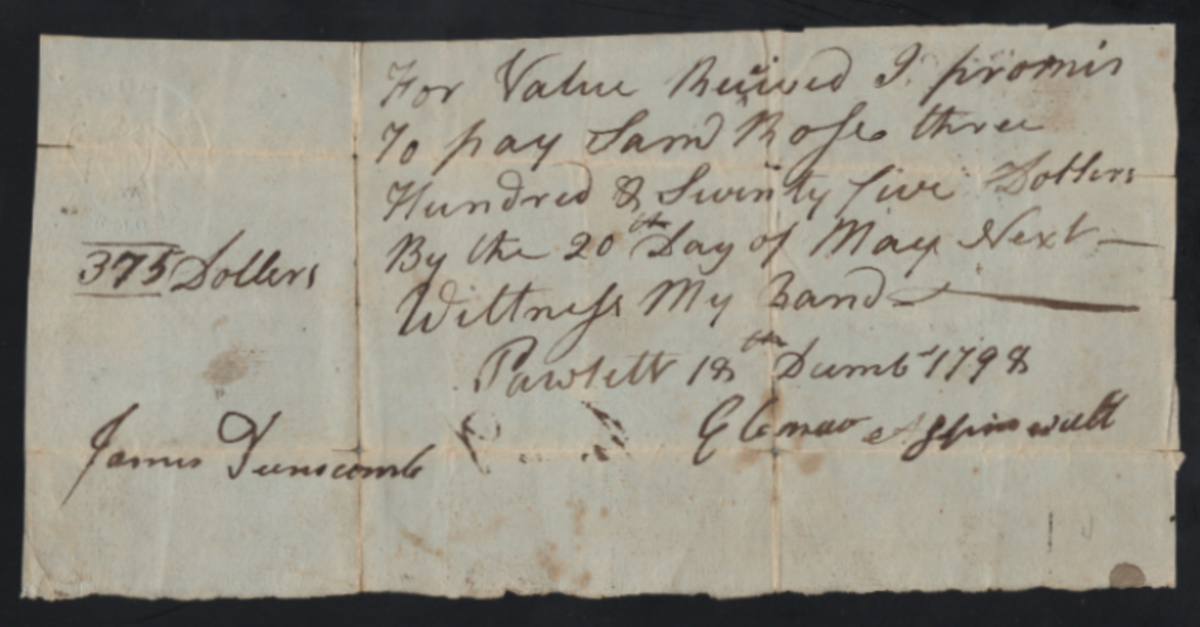 For Value Reciived I promis
To pay Saml Rose three
Hundred & Swinty five Dollers
By the 20th Day of May Next
375 Dollers
Wittness My Hand
Pawlett 18th Decmbr 1798
James Dunscomb
Aspinwall